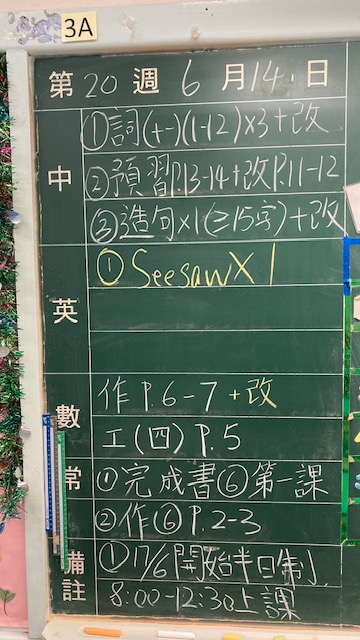 3A
第 20 週 6 月 14 日
中
①詞(十一)(1-12)×3+改
②預習P.13-14+改P.11-12
③造句×1(≥15字)+改
英
①Seesaw×1
數
作 P.6-7 +改
工(四) P.5
常
①完成書⑥第一課
②作⑥P.2-3
備註
①17/6開始半日制,
8:00-12:30上課